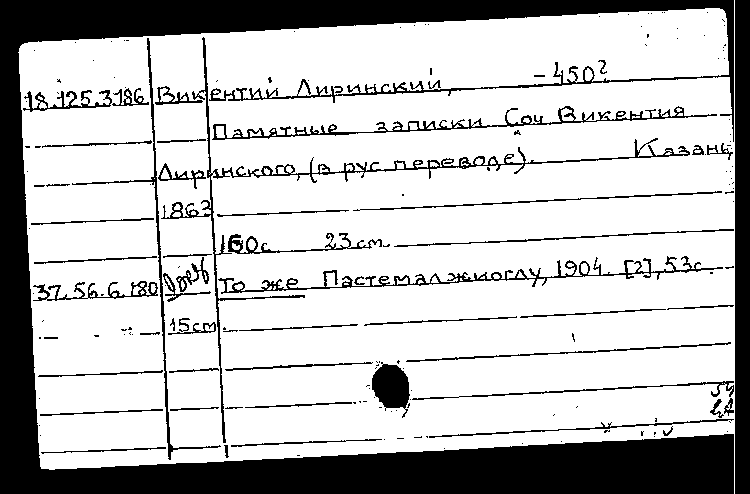 18.125.3.186 Викентий Лиринский, -450?
Памятные записки Соч Викентия
Лиринского, (в рус переводе). Казань
1863
160с 23см.
37.56.6.180 То же Пастемалжиоглу, 1904. [2], 53с.
15см.